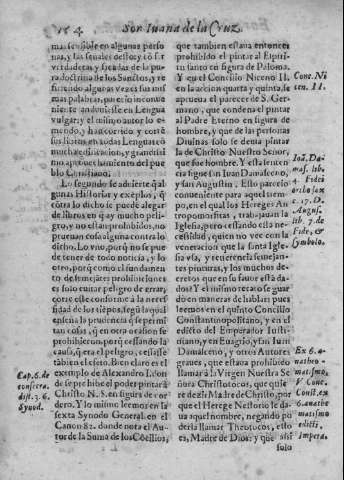 164. Sor Iuana de la Cruz.
mas sensible en algunas perso
nas, y las señales dello; es si
verdaderas y sacadas de la pu
ra doctrina de los Santos, y re
firiendo algunas vezes sus mis
mas palabras, puesto inconue
niente andauiesse en Lengua
vulgar; y el mismo autor lo e-
mendo, y han corrido y corre
sus libros en todas Lenguas cō
mucha edificacion, y grandissi
mo aprouechamiento del pue
blo Christiano.
Lo segundo se aduierte q̄ al
gunas Historias y exēplos, q̄
cōtra lo dicho se puede alegar
de libros en q̄ ay mucho peli-
gro, y no estan prohibidos, no
prueuan cosa alguna contra lo
dicho. Lo vno, porq̄ no se pue
de tener de todo noticia; y lo
otro, porq̄ como el fundamen
to de semejātes prohibiciones
es solo euitar peligro de errar,
corre este conforme à la neces
sidad de los tiēpos, segū la qual
enseña la prudencia q̄ se permi
tan cosas, q̄ en otra ocasion se
prohibieron, porq̄ cessando la
causa, q̄ era el peligro, cessa ta-
bien el efeto. Bien claro es el
exemplo de Alexandro I. don
de se prohibe el poder pintar à
Christo N. S. en figura de cor
dero. Y lo mismo leemos en la
sexta Synodo General en el
Canon 82. donde nota el Au-
tor de la Suma de los Cōcilios,
Cap. 6. de
consecra.
dist. 3. 6.
Synod.
que tambien estaua entonces
prohibido el pintar al Espiri-
tu santo en figura de Paloma.
Y en el Concilio Niceno II.
en la accion quarta y quinta, se
aprueua el parecer de S. Ger-
mano, que condena el pintar
al Padre Eterno en figura de
hombre, y que de las personas
Diuinas solo se deuia pintar
la de Christo Nuestro Señor,
que fue hombre. Y esta senten
cia sigue san Iuan Damasceno,
y san Augustin; Esto parecio
conueniente para aquel tiem-
po, en el qual los Hereges An
tropomorfitas, trabajauan la
Iglesia, pero cessando esta ne-
cessidad, quien no vee con la
veneracion que la santa Igle-
sia vsa, y reuerencia semejan-
tes pinturas, y los muchos de-
cretos que en su fauor està da-
dos? Y el mismo recato se guar
dò en maneras de hablar; pues
leemos en el quinto Concilio
Constantinopolitano, y en el
edicto del Emperador Iusti-
niano, y en Euagrio, y san Iuan
Damasceno, y otros Autores
graues, que estaua prohibido
llamar à la Virgen Nuestra Se
ñora Christotocos, que quie
re dezir Madre de Christo, por
que el Herege Nestorio le da-
ua aquel nombre, negando po
derla llamar Theotocos, esto
es, Madre de Dios: y que assi
solo
Conc. Ni
cen. II.
Ioã. Da-
mas. lib.
4. Fidei
c. 17. D.
Augus.
lib. 7. de
Fide, &
Symbolo.
Ex 6. a-
nathe-
matismo,
V Conc.
Const. ex
6. anathe
matismo
edicti,
impera.